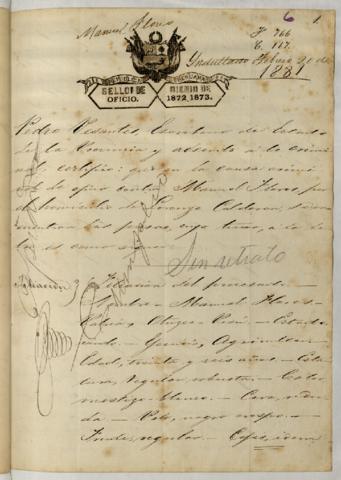 6 1
Manuel Flores
F 766
C. 117.
Indultado Febrero 20 de
1881
SELLO 1º DE
OFICIO.
BIENIO DE
1872, 1873.
Pedro Cevantes, Escribano de Estado
de la Provincia y adscrito a lo crimi-
nal, certifico: que en la causa crimi-
nal de oficio contra Manuel Flores, por
el homicidio de Lorenzo Calderon, se en-
cuentran las piezas, cuyo tenor, a la
letra es como sigue
Sin retrato
Filiacion Filiacion del procesado.—
Nombre — Manuel Flores—
Patria, Otuzco — Perú.— Estado,
— Ejercicio, Agricultor.—
Edad, treinta y seis años.— Esta-
tura, regular, robusta.— Color
mestizo-blanco.— Cara, redon-
da — Pelo, negro crespo.—
Frente, regular.— Cejas, idem